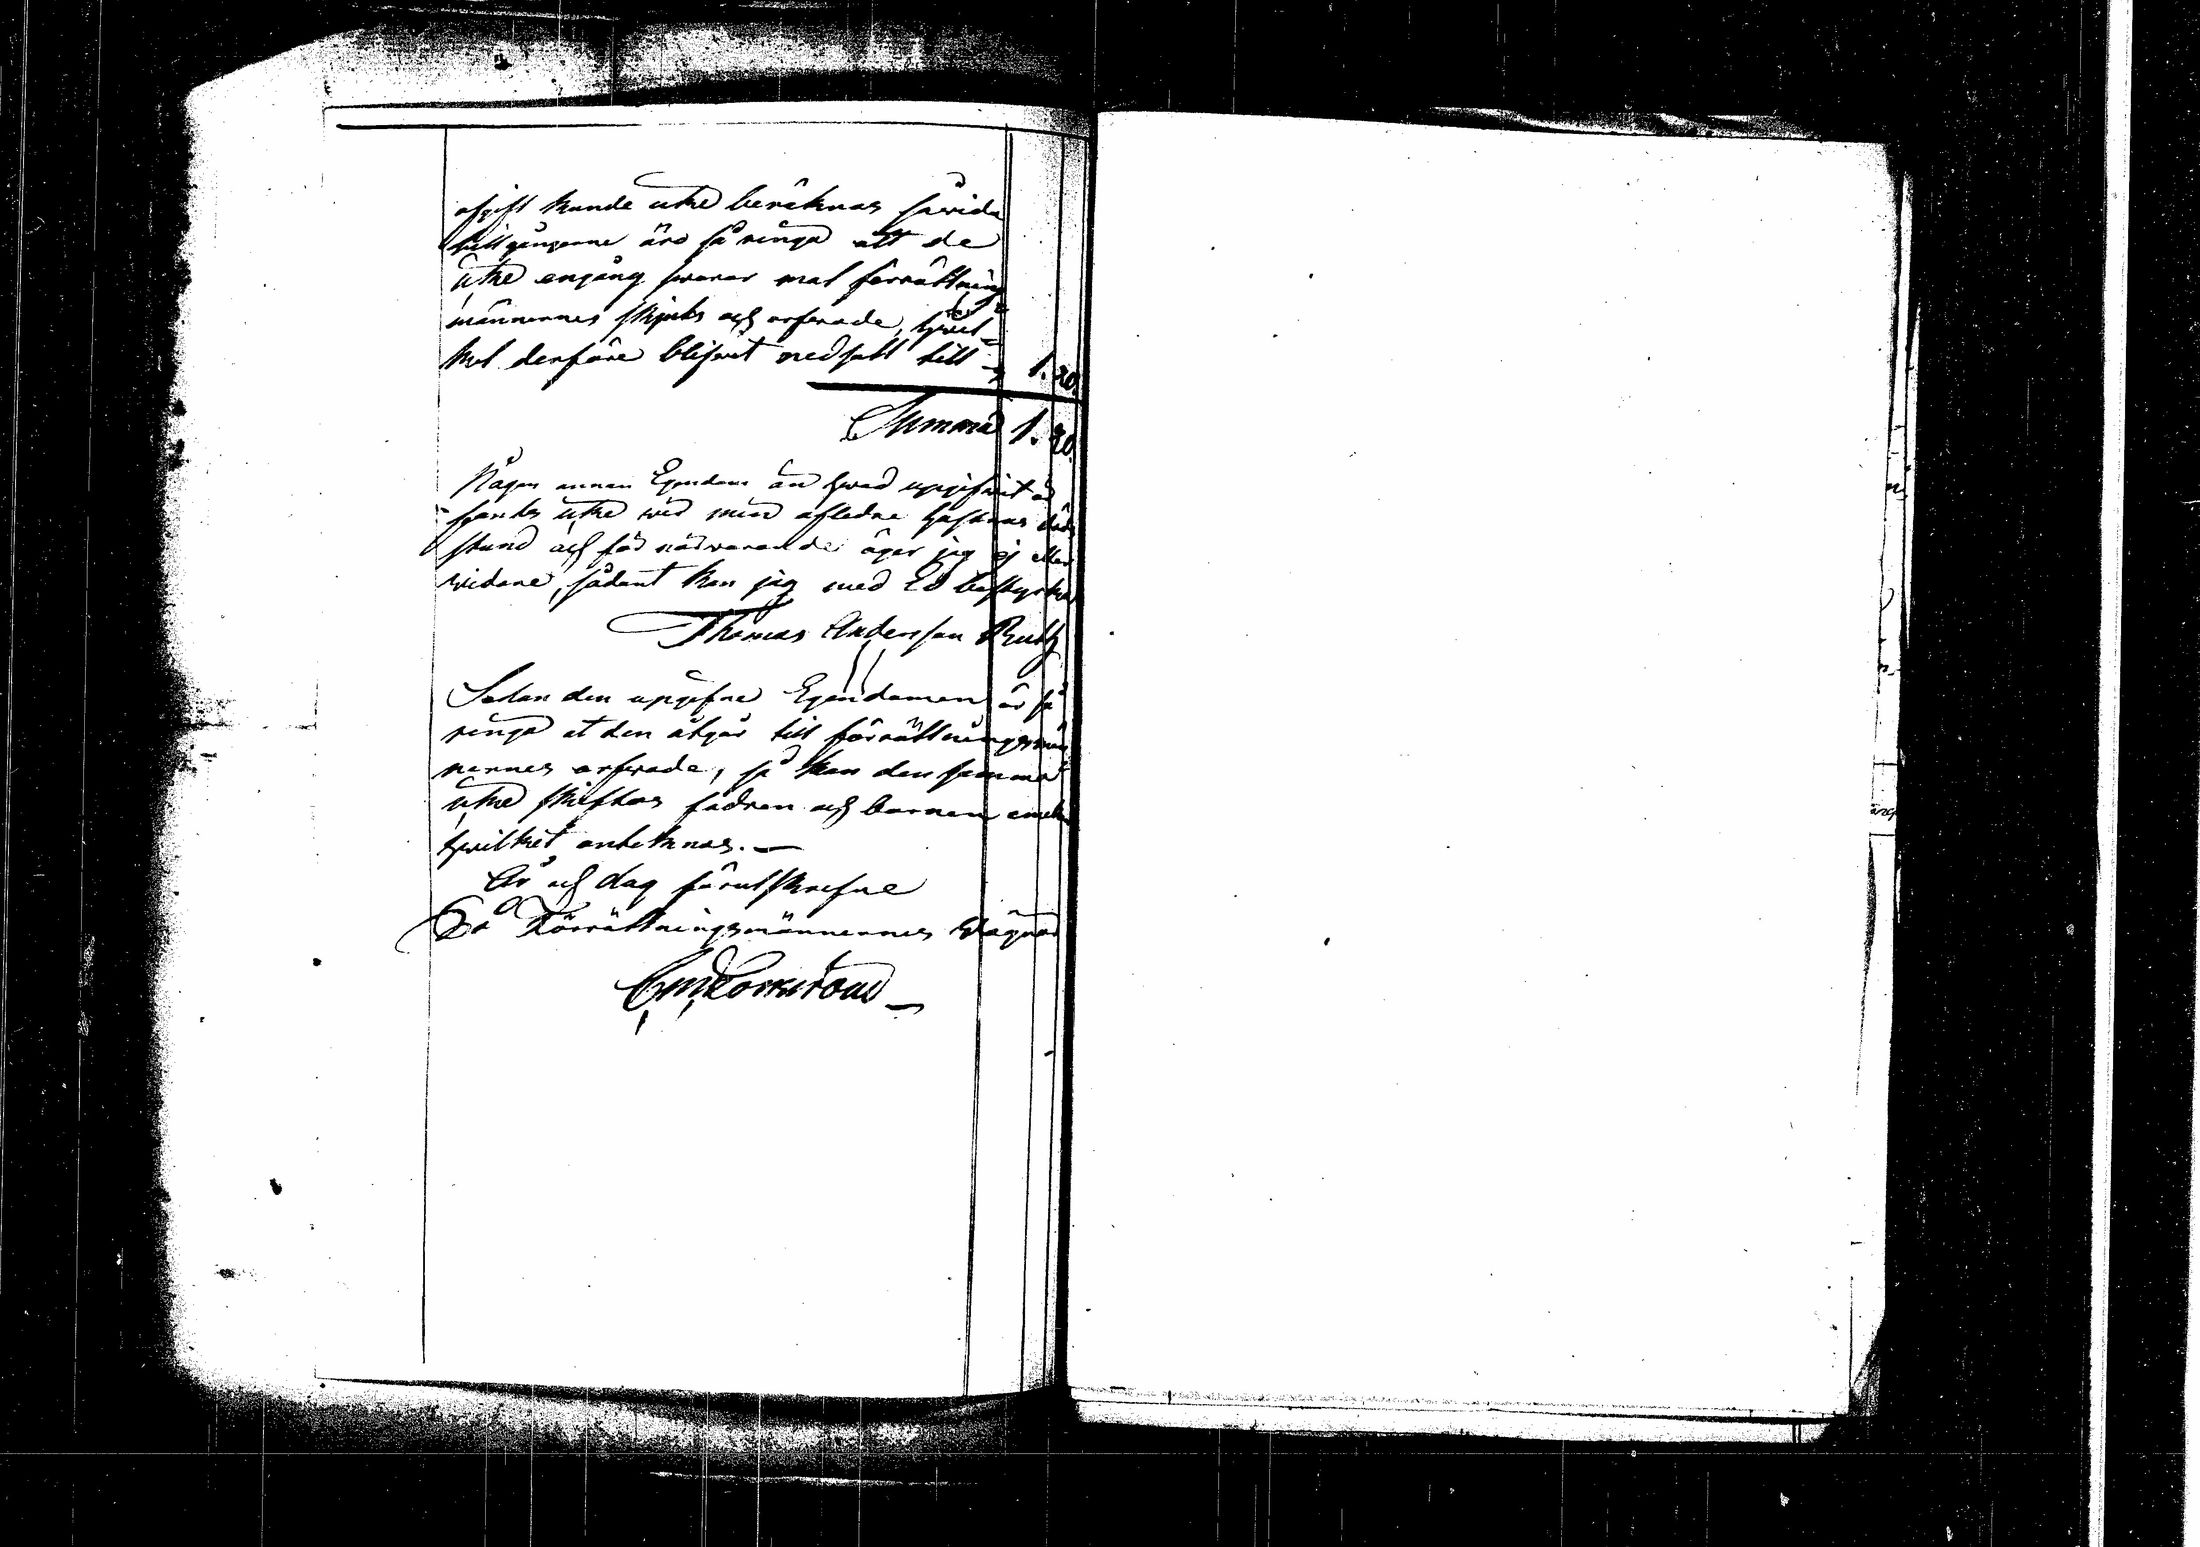 afgift kunde icke beräknas såvida
tillgångarne äro så ringa att de
icke engång svarar mot förrättnings
männernes skjuts och arfvode, hvil-
ket derföre blifvit nedsatt till 1. 20.
Summa 1. 20.
Någon annan Egendom än hvad uppgifvit är
fants icke vid min aflidne hustrus döds
stund och för närvarande äger jag ej eller
vidare, sådant kan jag med Ed bestyrka
Thomas Andersson Ruth
Sedan den uppgifne Egendomen är så
ringa at den åtgår till förrättningsmän
nernes arfvode, så kan den samma
icke skiftas fadren och barnen emellan
hvilket antecknas. —
År och dag förutskrefne
På Förrättningsmännernes vägnar